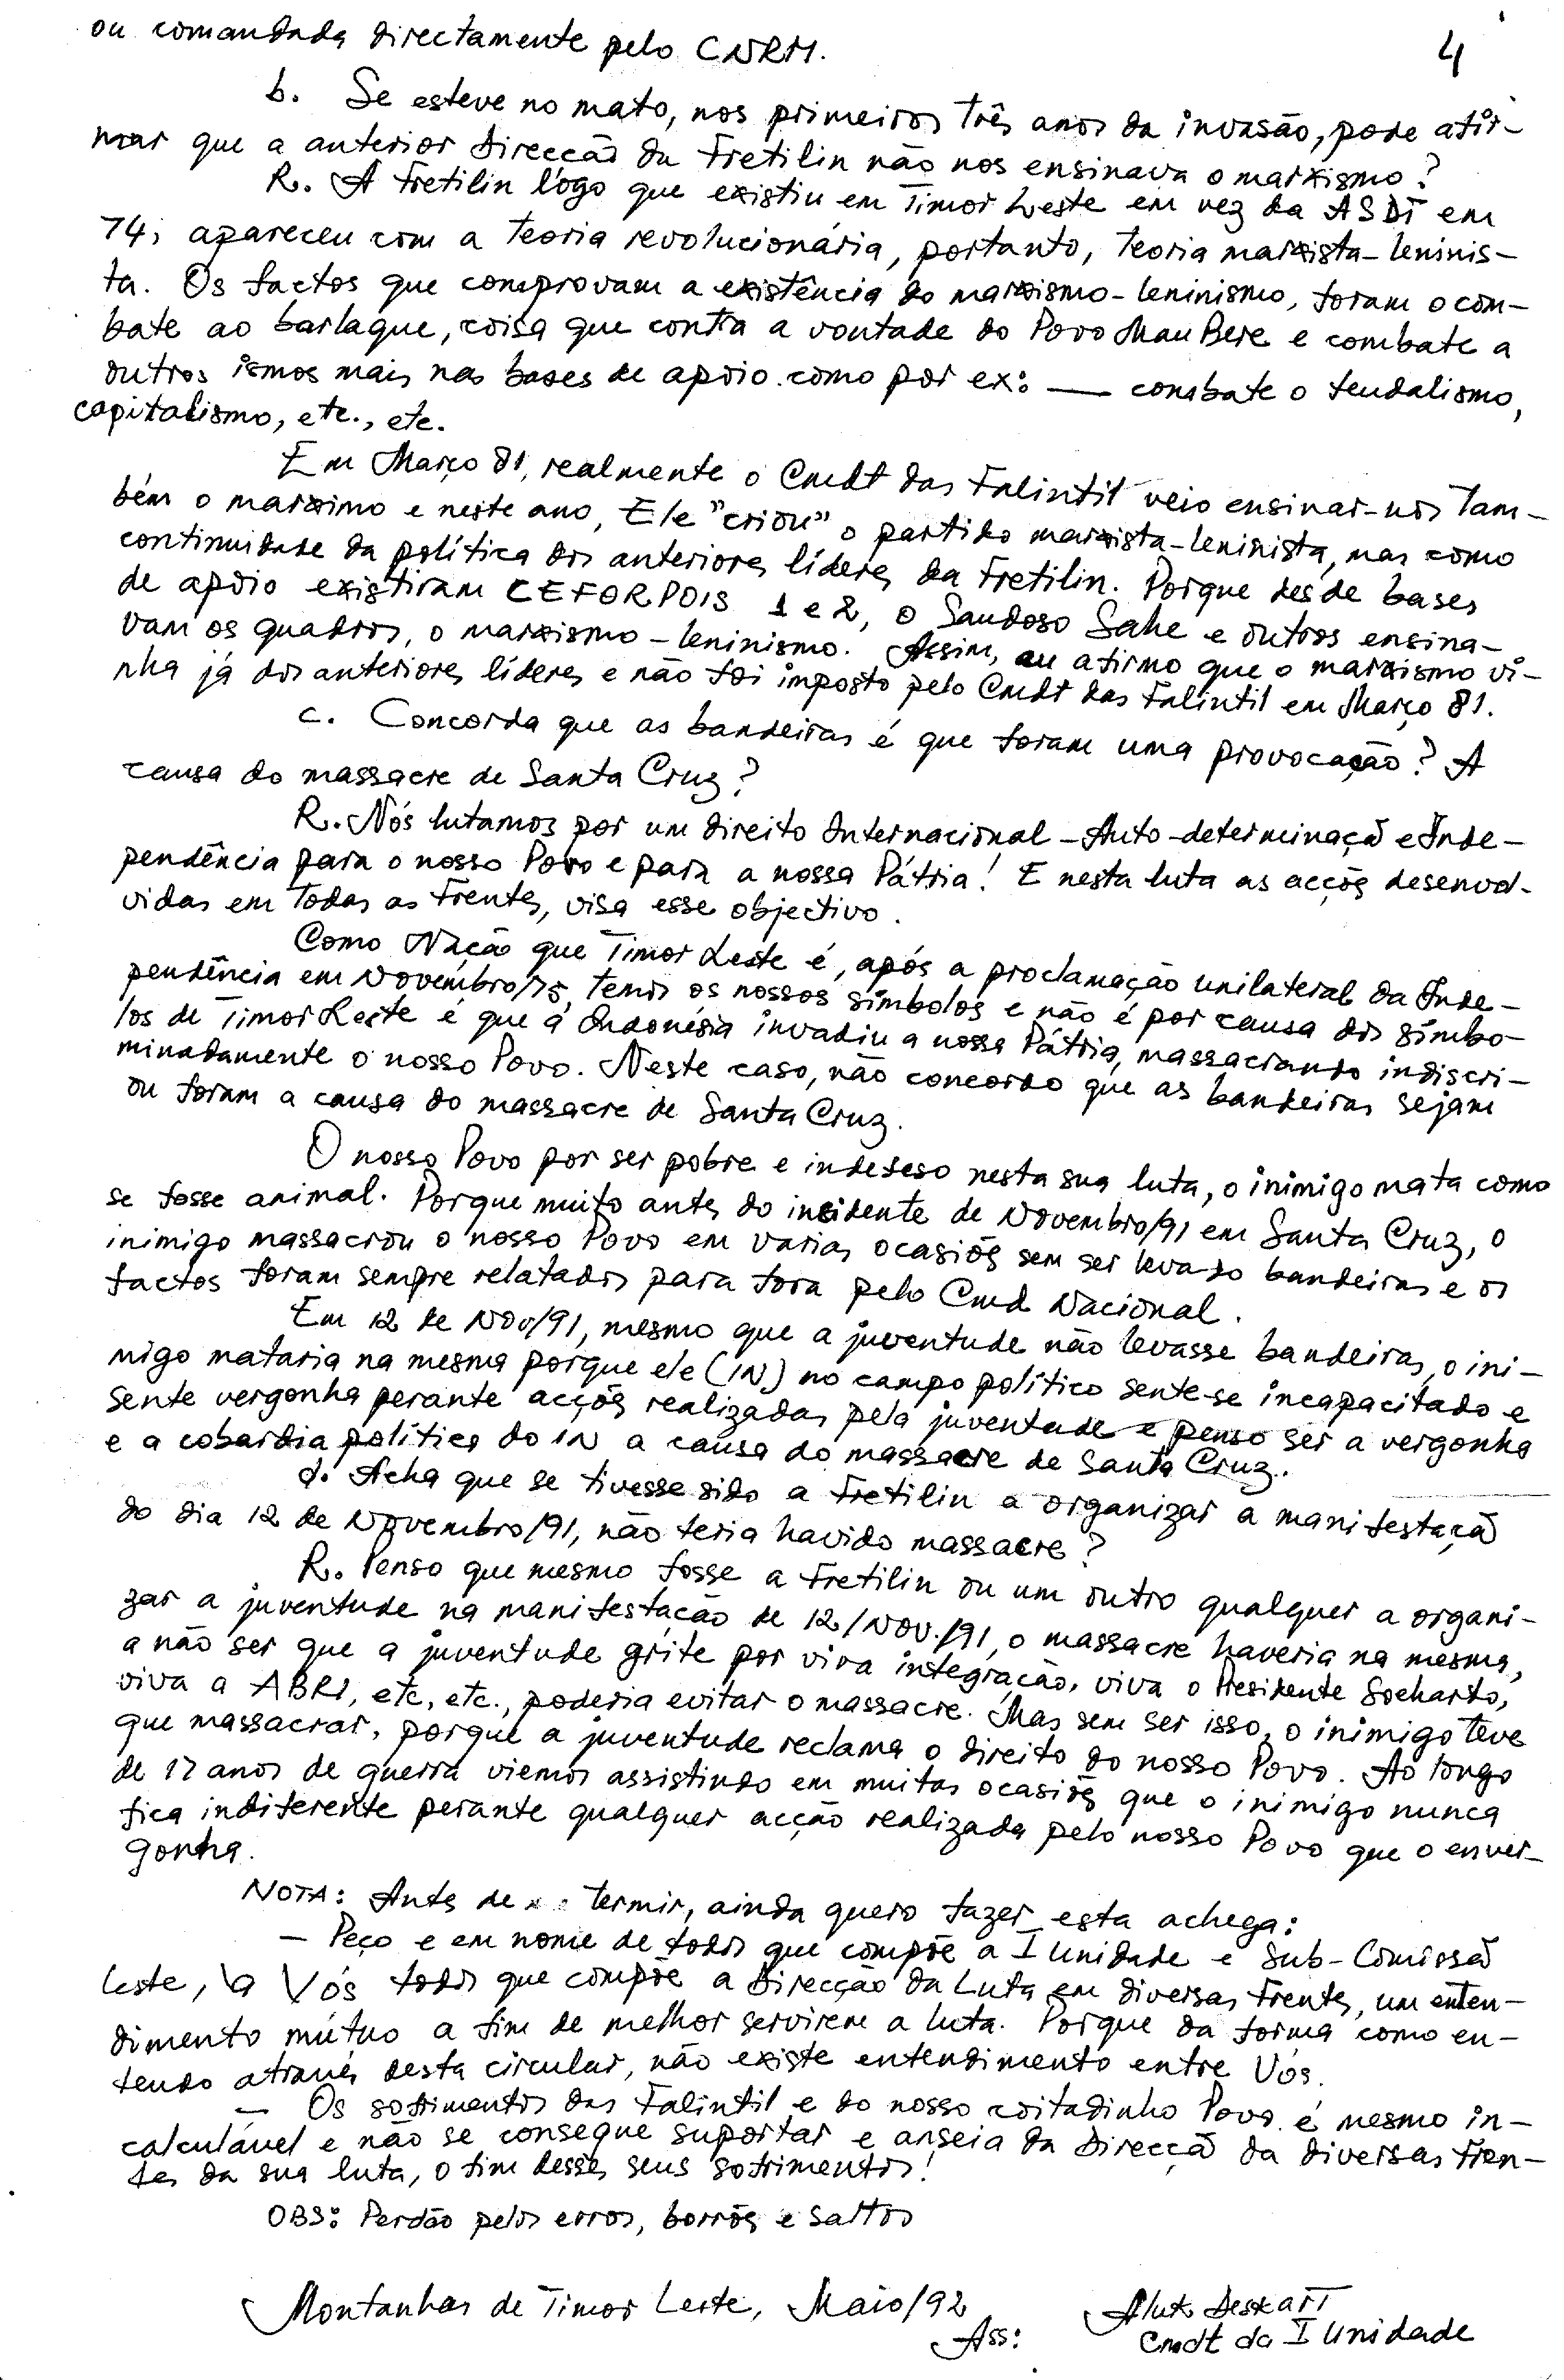 4
ou comandada directamente pelo CNRM.
b. Se esteve no mato, nos primeiros três anos da invasão, pode afir-
mar que a anterior direcção da Fretilin não nos ensinava o marxismo?
R. A Fretilin lógo que existiu em Timor Leste em vez da ASDT em
74, apareceu com a teoria revolucionária, portanto, teoria marxista-leninis-
ta. Os factos que comprovam a existência do marxismo-leninismo, foram o com-
bate ao barlaque, coisa que contra a vontade do Povo MauBere e combate a
outros ismos mais nas bases de apoio como por ex: — combate o feudalismo,
capitalismo, etc., etc.
Em Março 81, realmente o Cmdt das Falintil veio ensinar-nos tam-
bém o marximo e neste ano, Ele "criou" o partido marxista-leninista, mas como
continuidade da política dos anteriores líderes da Fretilin. Porque desde bases
de apoio existiram CEFORPOIS 1 e 2, o Saudoso Sahe e outros ensina-
vam os quadros, o marxismo-leninismo. Assim, eu afirmo que o marxismo vi-
nha já dos anteriores líderes e não foi imposto pelo Cmdt das Falintil em Março 81.
c. Concorda que as bandeiras é que foram uma provocação? A
causa do massacre de Santa Cruz?
R. Nós lutamos por um direito Internacional - Auto-determinaçã e Inde-
pendência para o nosso Povo e para a nossa Pátria! E nesta luta as acçõs desenvol-
vidas em todas as Frentes, visa esse objectivo.
Como Nação que Timor Leste é, após a proclamação unilateral da Inde-
pendência em Novembro/75, temos os nossos símbolos e não é por causa dos símbo-
los de Timor Leste é que a Indonésia invadiu a nossa Pátria, massacrando indiscri-
minadamente o nosso Povo. Neste caso, não concordo que as bandeiras sejam
ou foram a causa do massacre de Santa Cruz.
O nosso Povo por ser pobre e indefeso nesta sua luta, o inimigo mata como
se fosse animal. Porque muito antes do insidente de Novembro/91 em Santa Cruz, o
inimigo massacrou o nosso Povo em varias ocasiõs sem ser levado bandeiras e os
factos foram sempre relatados para fora pelo Cmd Nacional.
Em 12 de Nov/91, mesmo que a juventude não levasse bandeiras, o ini-
migo mataria na mesma porque ele (IN) no campo político sente-se incapacitado e
sente vergonha perante acçõs realizadas pela juventude e penso ser a vergonha
e a cobardia política do IN a causa do massacre de Santa Cruz.
d. Acha que se tivesse sido a Fretilin a organizar a manifestaçã
do dia 12 de Novembro/91, não teria havido massacre?
R. Penso que mesmo fosse a Fretilin ou um outro qualquer a organi-
zar a juventude na manifestação de 12/Nov./91, o massacre haveria na mesma,
a não ser que a juventude grite por viva integração, viva o Presidente Soeharto,
viva a ABRI, etc, etc., poderia evitar o massacre. Mas sem ser isso, o inimigo teve
que massacrar, porque a juventude reclama o direito do nosso Povo. Ao longo
de 17 anos de guerra viemos assistindo em muitas ocasiõs que o inimigo nunca
fica indiferente perante qualquer acção realizada pelo nosso Povo que o enver-
gonha.
NOTA: Antes de termir, ainda quero fazer esta achega:
- Peço e em nome de todos que compõe a I Unidade e Sub-Comissã
Leste, a Vós todos que compõe a Direcção da Luta em diversas Frentes, um enten-
dimento mútuo a fim de melhor servirem a luta. Porque da forma como en-
tendo através desta circular, não existe entendimento entre Vós.
- Os sofrimentos das Falintil e do nosso coitadinho Povo é mesmo in-
calculável e não se consegue suportar e anseia da Direcçã da diversas Fren-
tes da sua luta, o fim desses seus sofrimentos!
OBS: Perdão pelos erros, borrõs e saltos
Montanhas de Timor Leste, Maio/92
Ass: Aluk Deskart
Cmdt da I Unidade